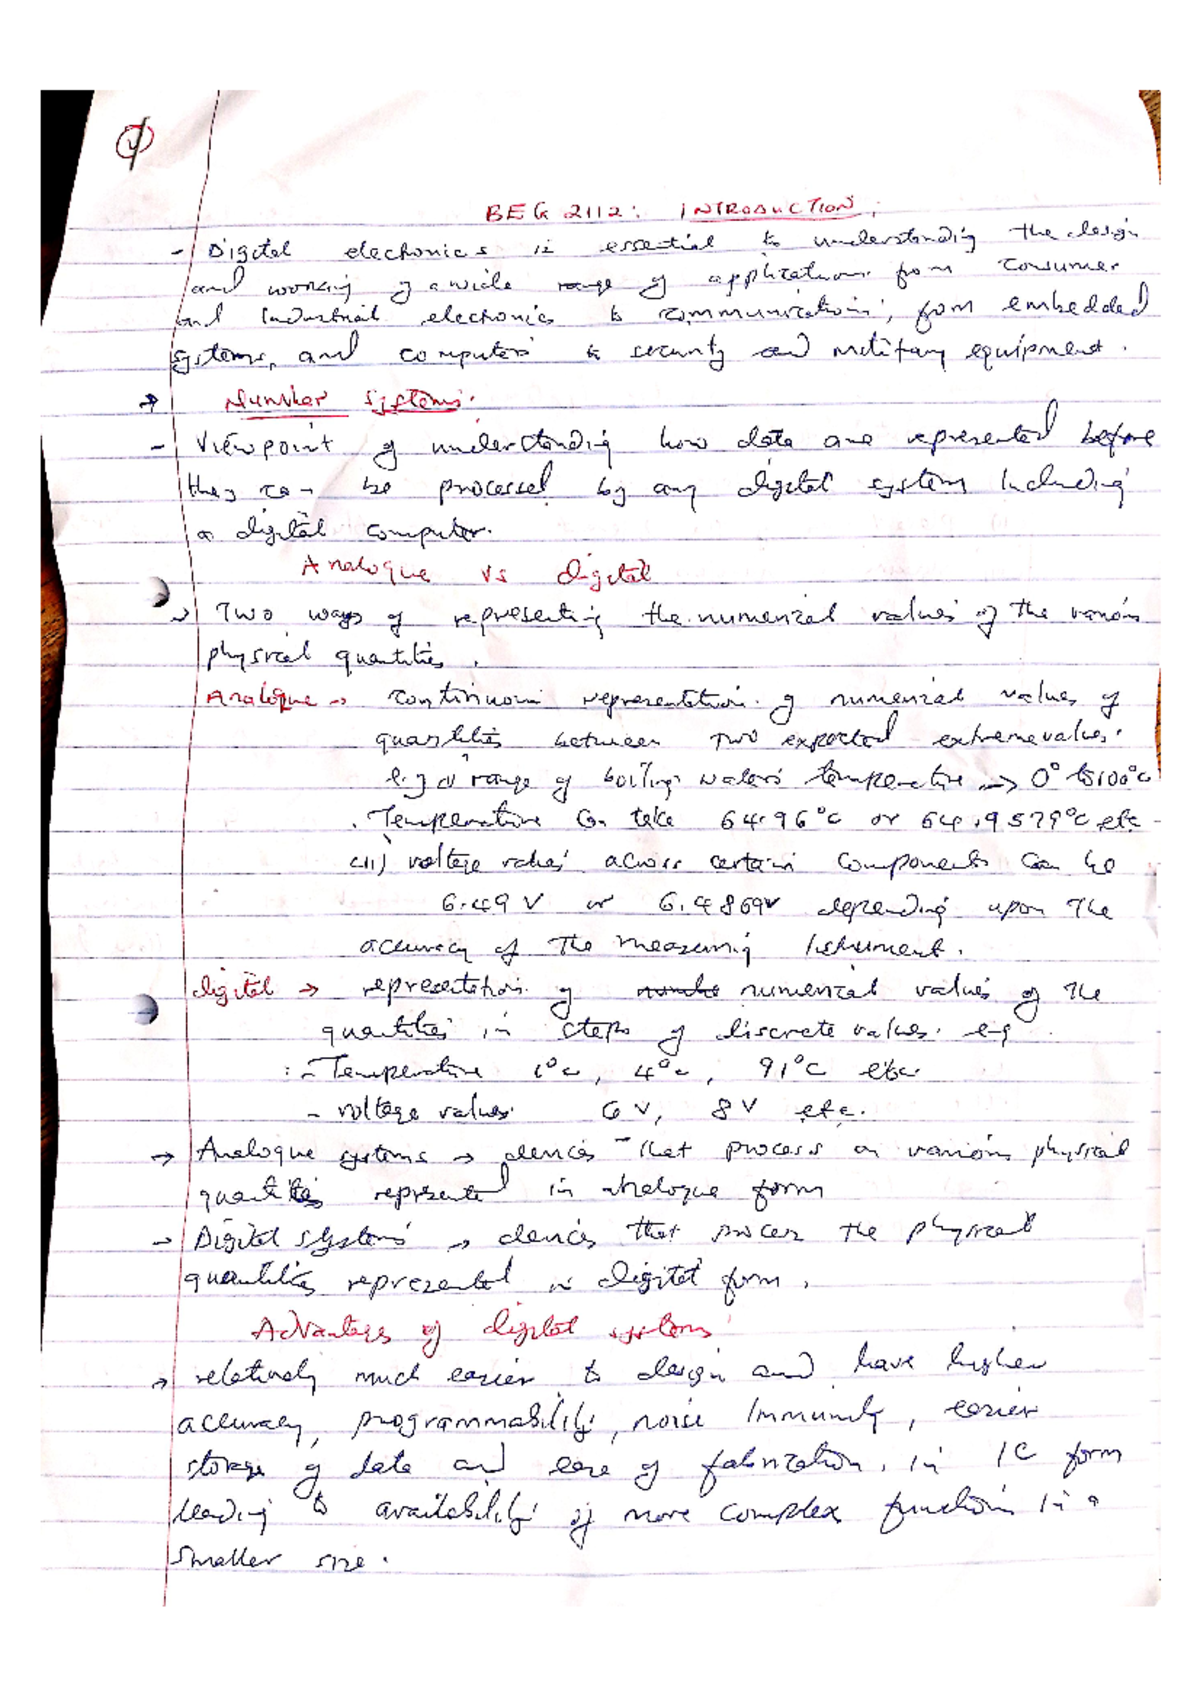 BEG 2112: INTRODUCTION.
- Digital electronics is essential to understanding the design
and working of a wide range of applications from consumer
and Industrial electronics to communications; from embedded
systems, and computers to security and military equipment.
→ Number systems.
- Viewpoint of understanding how data are represented before
they can be processed by any digital system Including
a digital computer.
Analogue vs digital
→ Two ways of representing the numerical values of the various
physical quantities.
Analogue → continuous representation of numerical values of
quantities between two expected extreme values.
e.g range of boiling waters temperature → 0° to 100°C
. Temperature Can take 64.96°C or 64.9579°C etc
(ii) voltage values across certain components can be
6.49 V or 6.4869V depending upon the
accuracy of the measuring Instrument.
digital → representation of numerical values of the
quantities in steps of discrete values. e.g
:- Temperature 1°C, 4°C, 91°C etc.
- voltage values 6 V, 8 V etc.
→ Analogue systems → devices that process on various physical
quantities represented in analogue form
→ Digital systems → devices that process the physical
quantities represented in digital form.
Advantages of digital systems
→ relatively much easier to design and have higher
accuracy, programmability, noise Immunity, easier
storage of data and ease of fabrication, in IC form
leading to availability of more complex functions in a
smaller size.